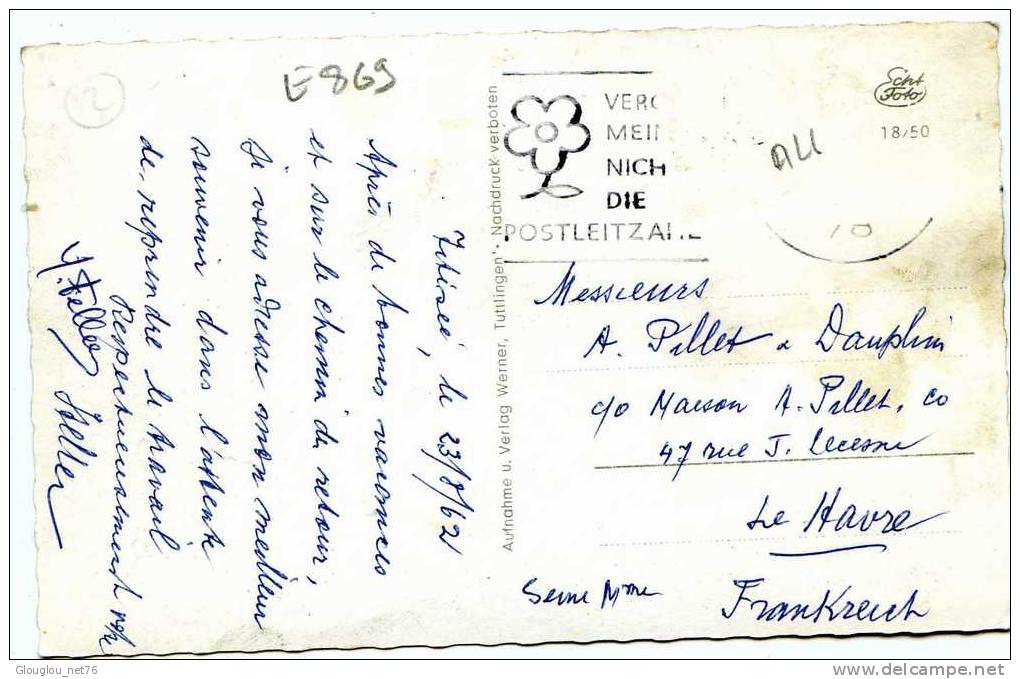 E 869
2
Titisee, le 23/8/62
Après de bonnes vacances
et sur le chemin du retour,
je vous adresse mon meilleur
souvenir dans l'attente
de reprendre le travail
Respectueusement votre
Keller
Aufnahme u. Verlag Werner, Tuttlingen · Nachdruck verboten
VERG
MEIN
NICH
DIE
POSTLEITZAHL
ALL
Echt
Foto
18/50
Messieurs
A. Pillet & Dauphin
c/o Maison A. Pillet, co
47 rue J. Lecesne
Le Havre
Seine Mme
Frankreich
Glouglou_net76
delcampe.net